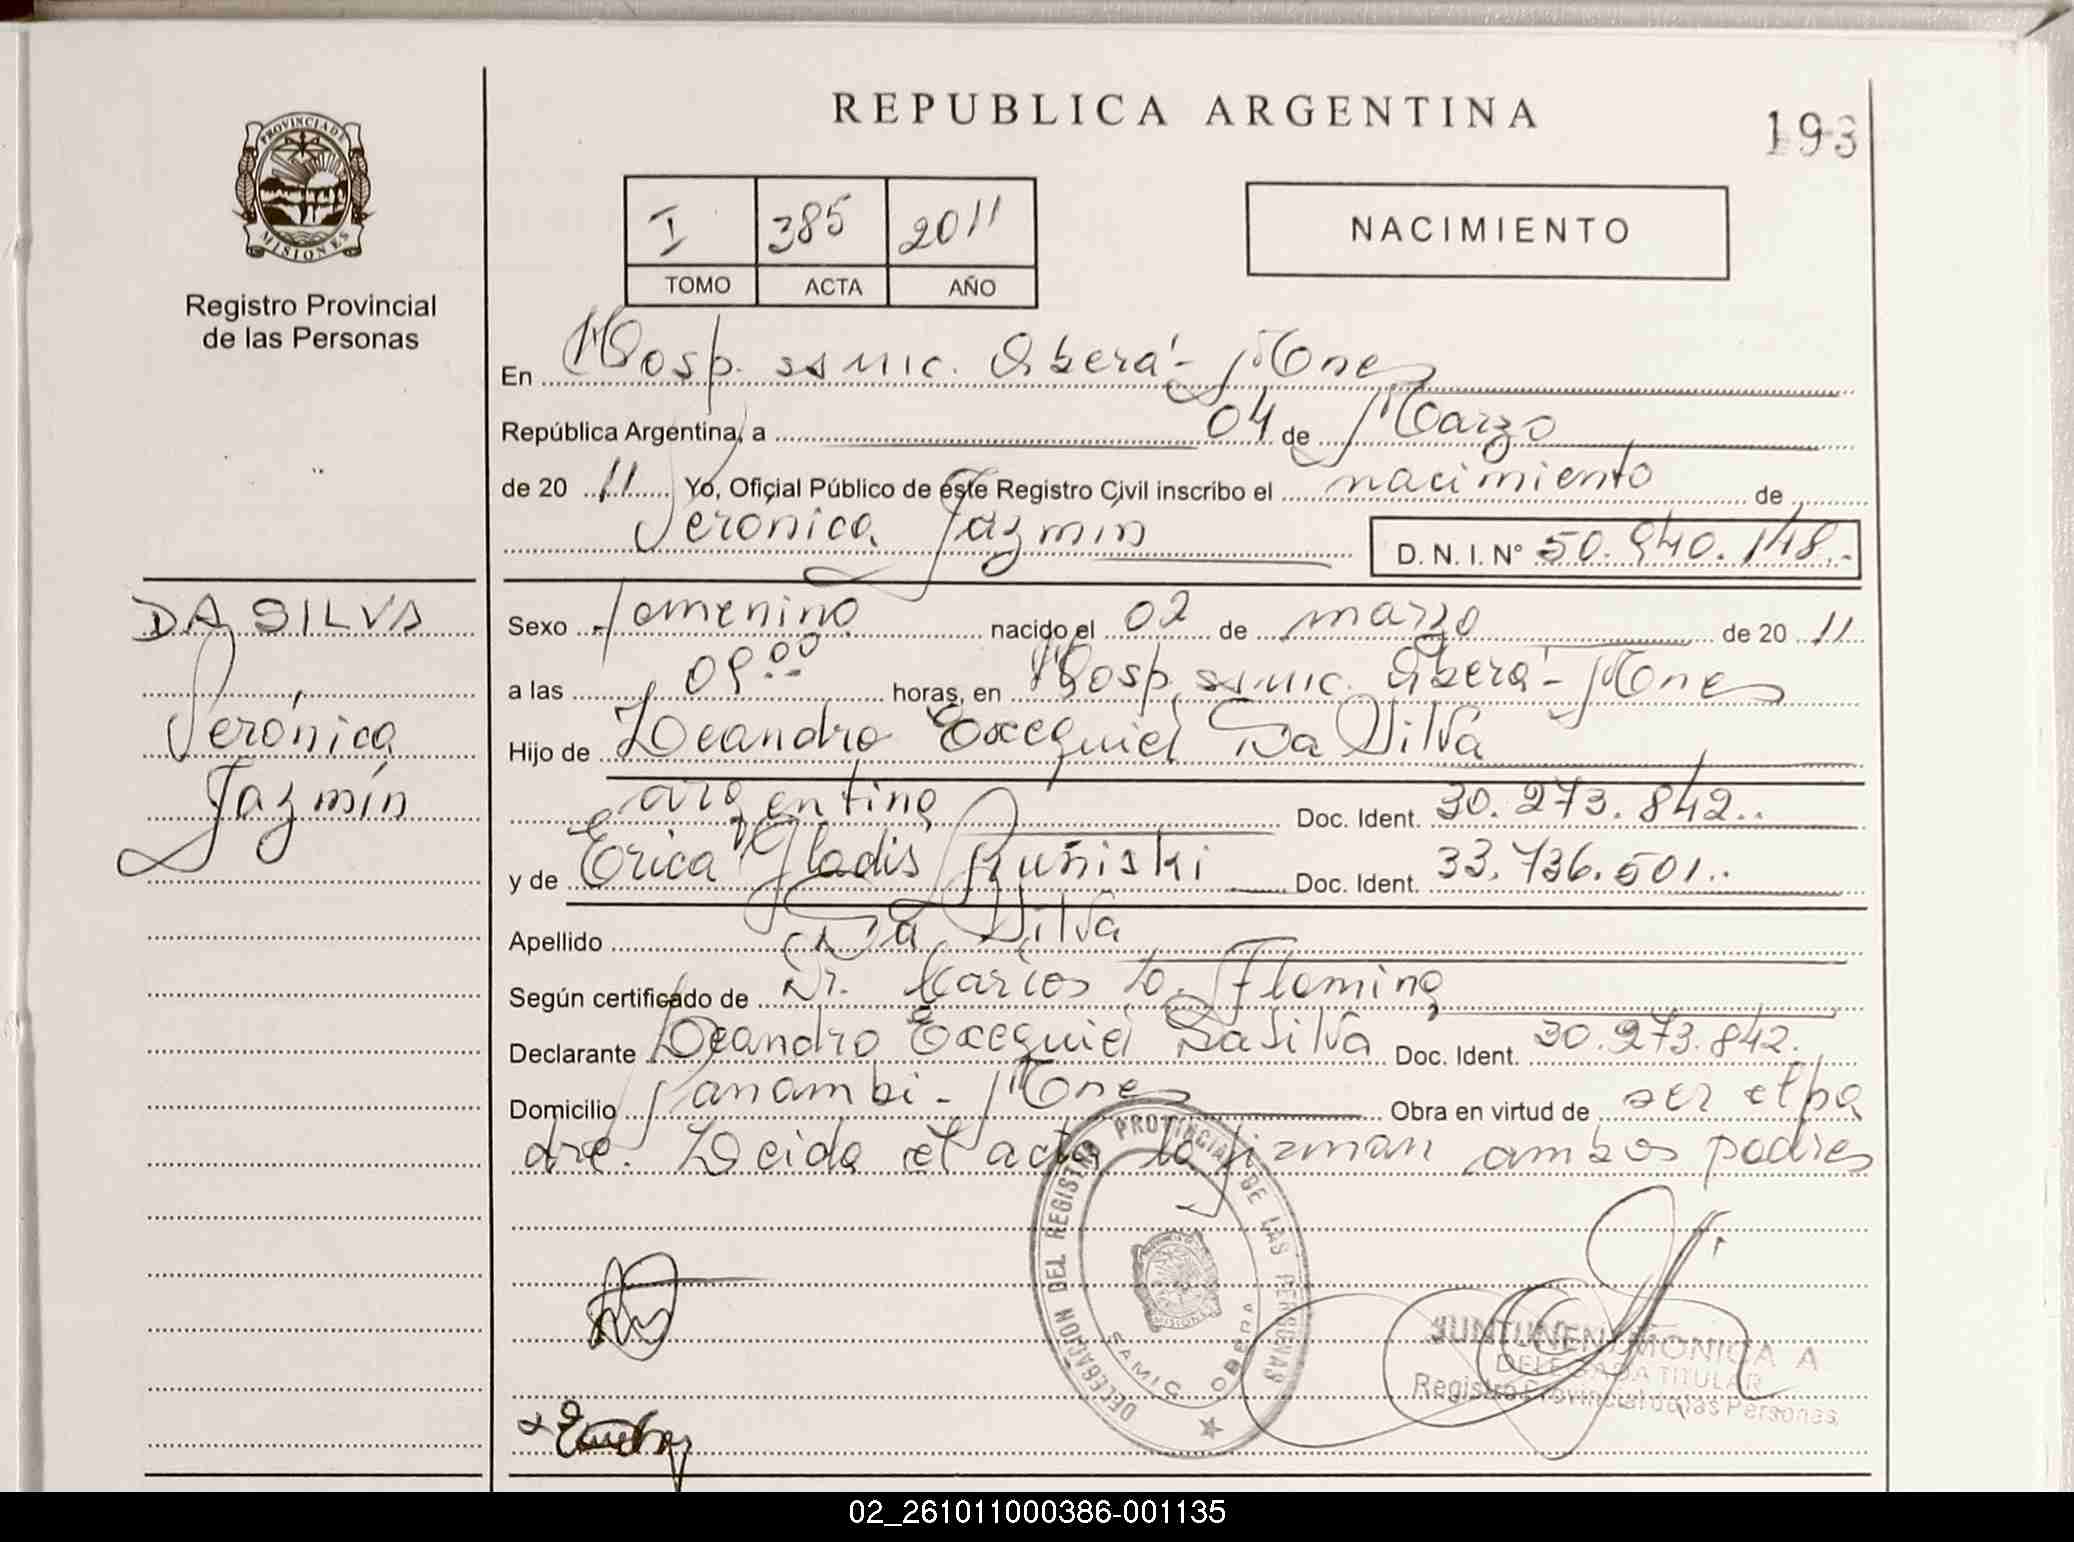 REPUBLICA ARGENTINA
193
PROVINCIA DE
MISIONES
Registro Provincial
de las Personas
I 385 2011
TOMO ACTA AÑO
NACIMIENTO
En Hosp. ssmic. Oberá - Mnes
República Argentina, a 04 de Marzo
de 20 11 Yo, Oficial Público de este Registro Civil inscribo el nacimiento de
Verónica Jazmín D. N. I. N° 50.940.148.-
DA SILVA
Verónica
Jazmín
Sexo femenino nacido el 02 de marzo de 20 11
a las 09:00 horas, en Hosp. ssmic. Oberá - Mnes
Hijo de Leandro Exequiel Da Silva
argentino Doc. Ident. 30.273.842..
y de Erica Gladis Doc. Ident. 33.736.501..
Apellido Da Silva
Según certificado de Dr. Carlos Fleming
Declarante Leandro Exequiel Da Silva Doc. Ident. 30.273.842.
Domicilio Panambí - Mnes Obra en virtud de ser el pa
dre. Leida el acta la firman ambos padres
DELEGACION DEL REGISTRO PROVINCIAL DE LAS PERSONAS
MISIONES
SAMIC OBERA
JUNTUNEN MONICA A
DELEGADA TITULAR
Registro Provincial de las Personas
02_261011000386-001135